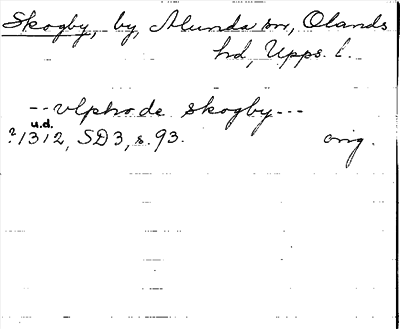 Skogby, by, Alunda sn, Olands
hd, Upps. l.
-- vlpho de skogby ---
u.d.
? 1312, SD3, s. 93. orig.